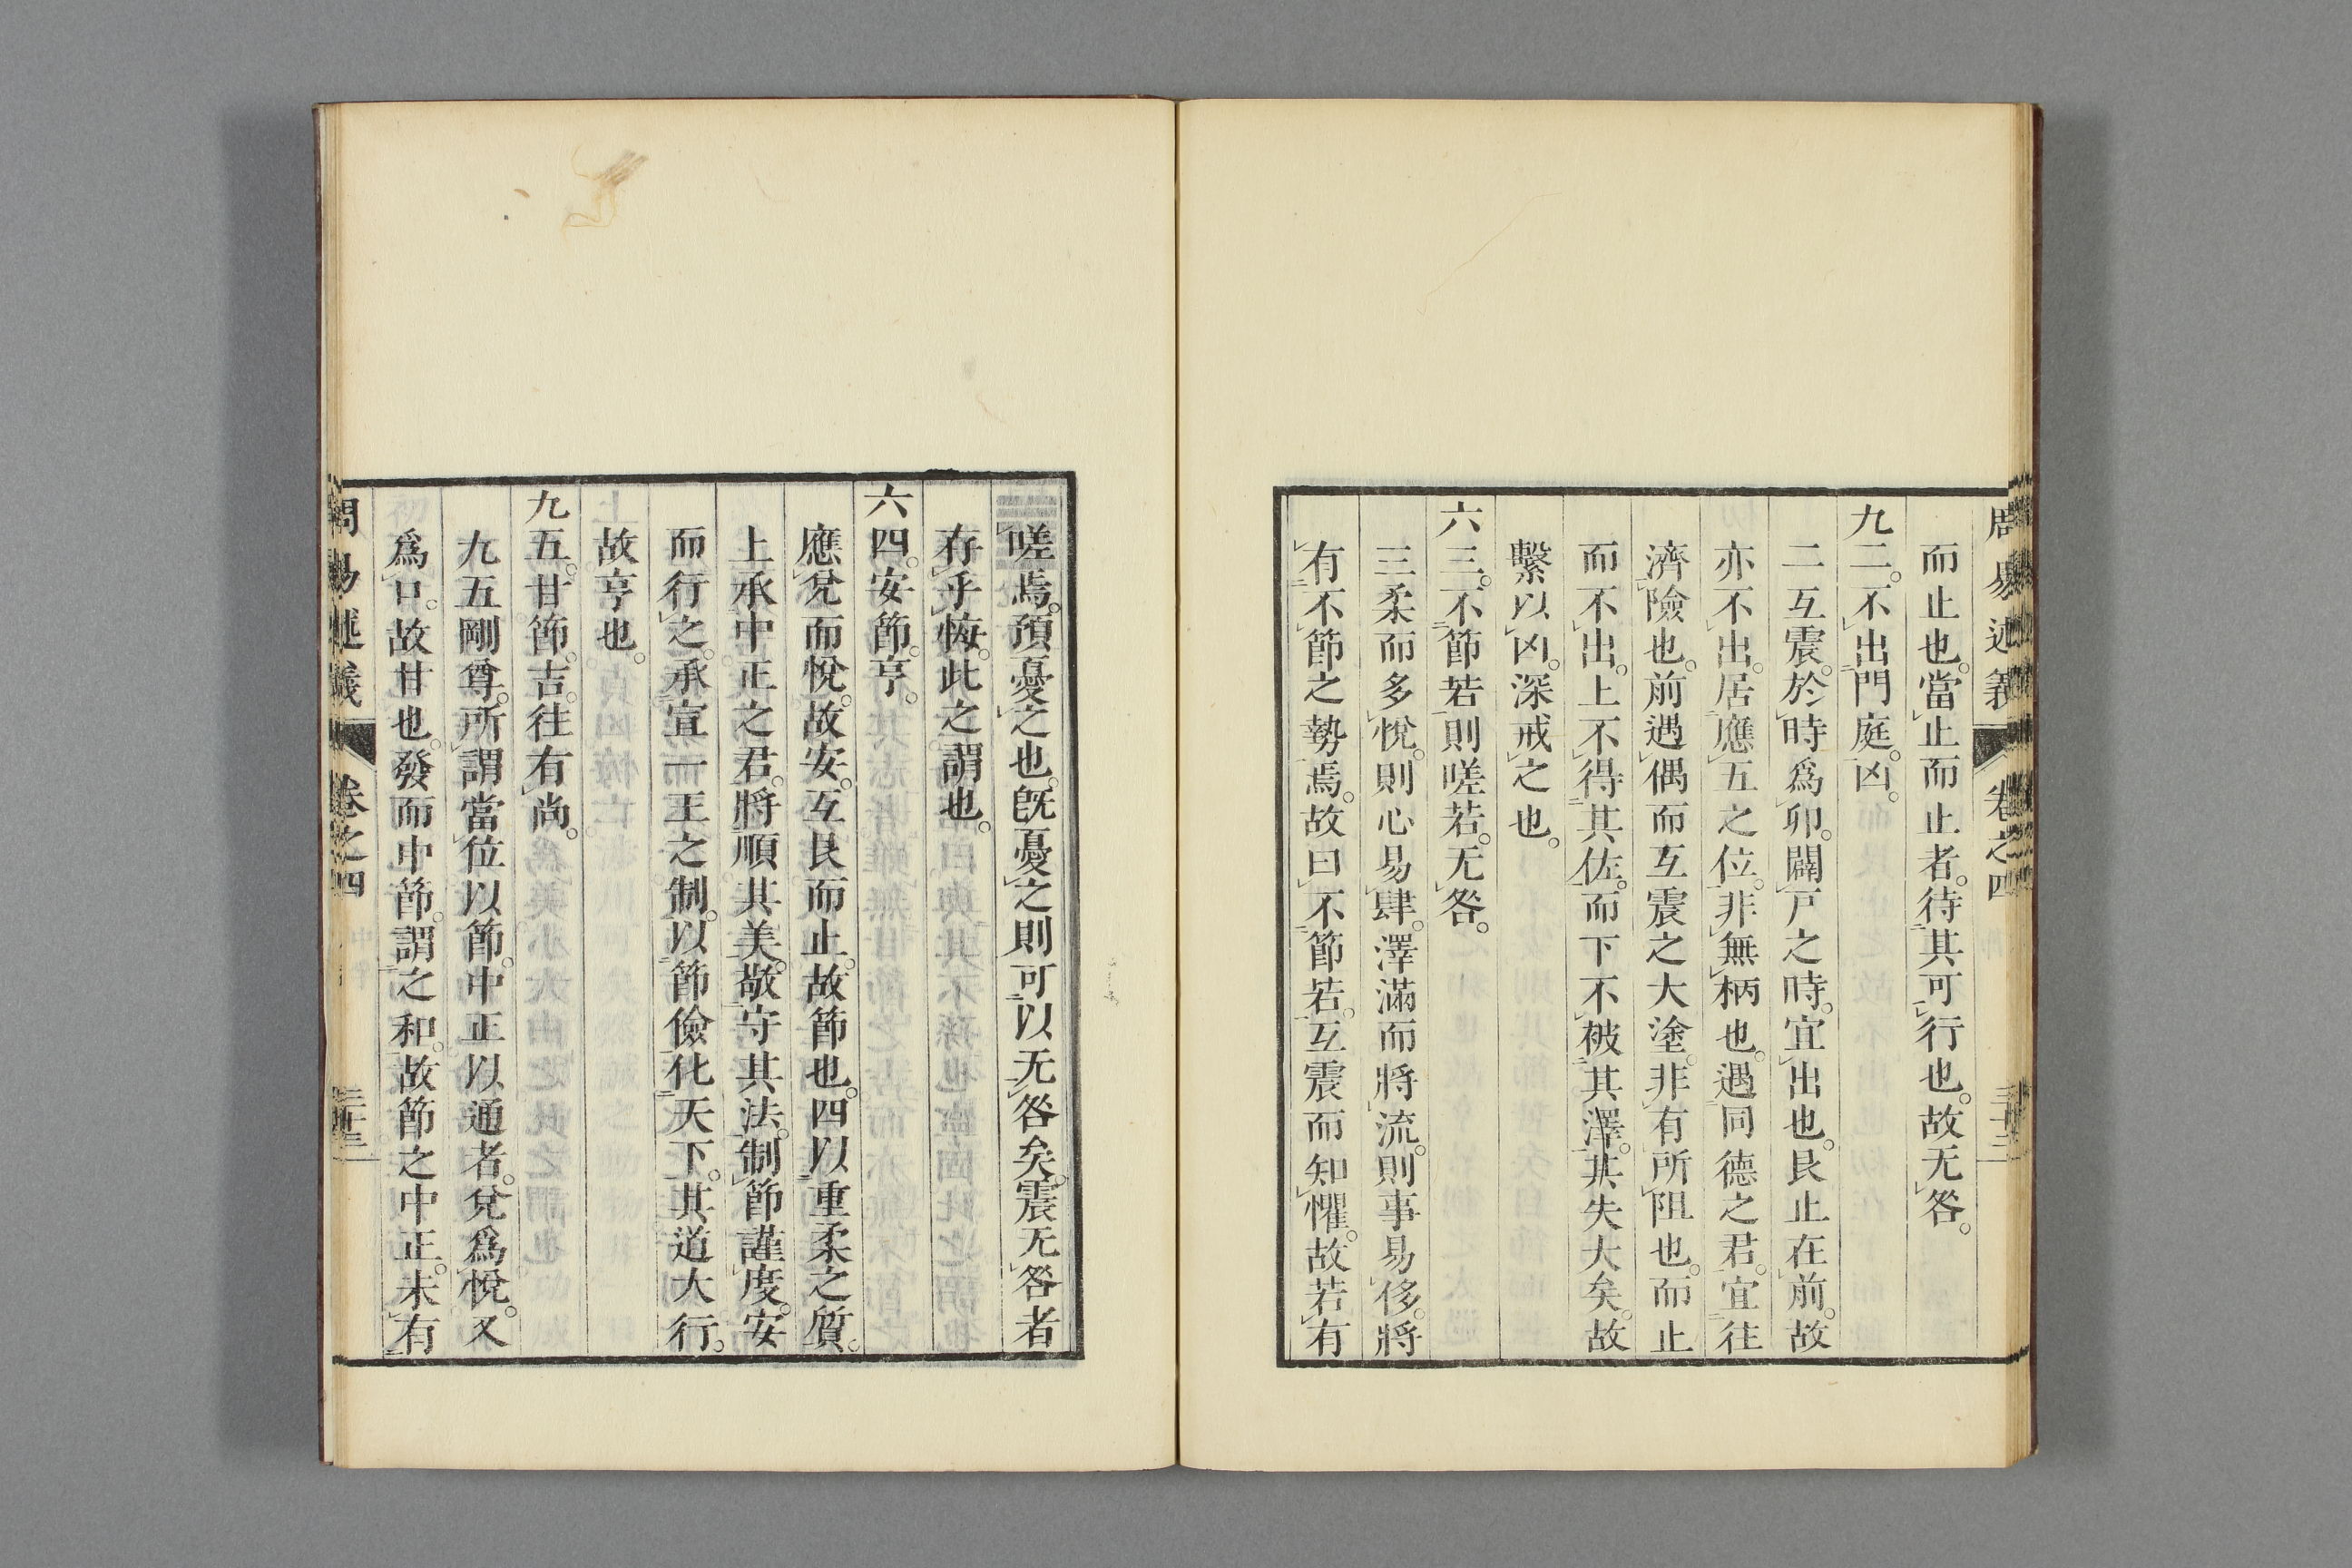 周易述義　卷之四
而止也。當止而止者。待其可行也。故无咎。
九二。不出門庭。凶。
二互震。於時爲卯。闢戸之時。宜出也。艮止在前。故
亦不出。居應五之位。非無柄也。遇同德之君。宜往
濟險也。前遇偶而互震之大塗。非有所阻也。而止
而不出。上不得其佐。而下不被其澤。其失大矣。故
繫以凶。深戒之也。
六三。不節若。則嗟若。无咎。
三柔而多悅。則心易肆。澤滿而將流。則事易侈。將
有不節之勢焉。故曰不節若。互震而知懼。故若有
嗟焉。預憂之也。旣憂之則可以无咎矣。震无咎者
存乎悔。此之謂也。
六四。安節。亨。
應兌而悅。故安。互艮而止。故節也。四以重柔之質。
上承中正之君。將順其美。敬守其法。制節謹度。安
而行之。承宣一王之制。以節儉化天下。其道大行。
故亨也。
九五。甘節。吉。往有尚。
九五剛尊。所謂當位以節。中正以通者。兌爲悅。又
爲口。故甘也。發而中節。謂之和。故節之中正。未有
周易述義　卷之四　三十三